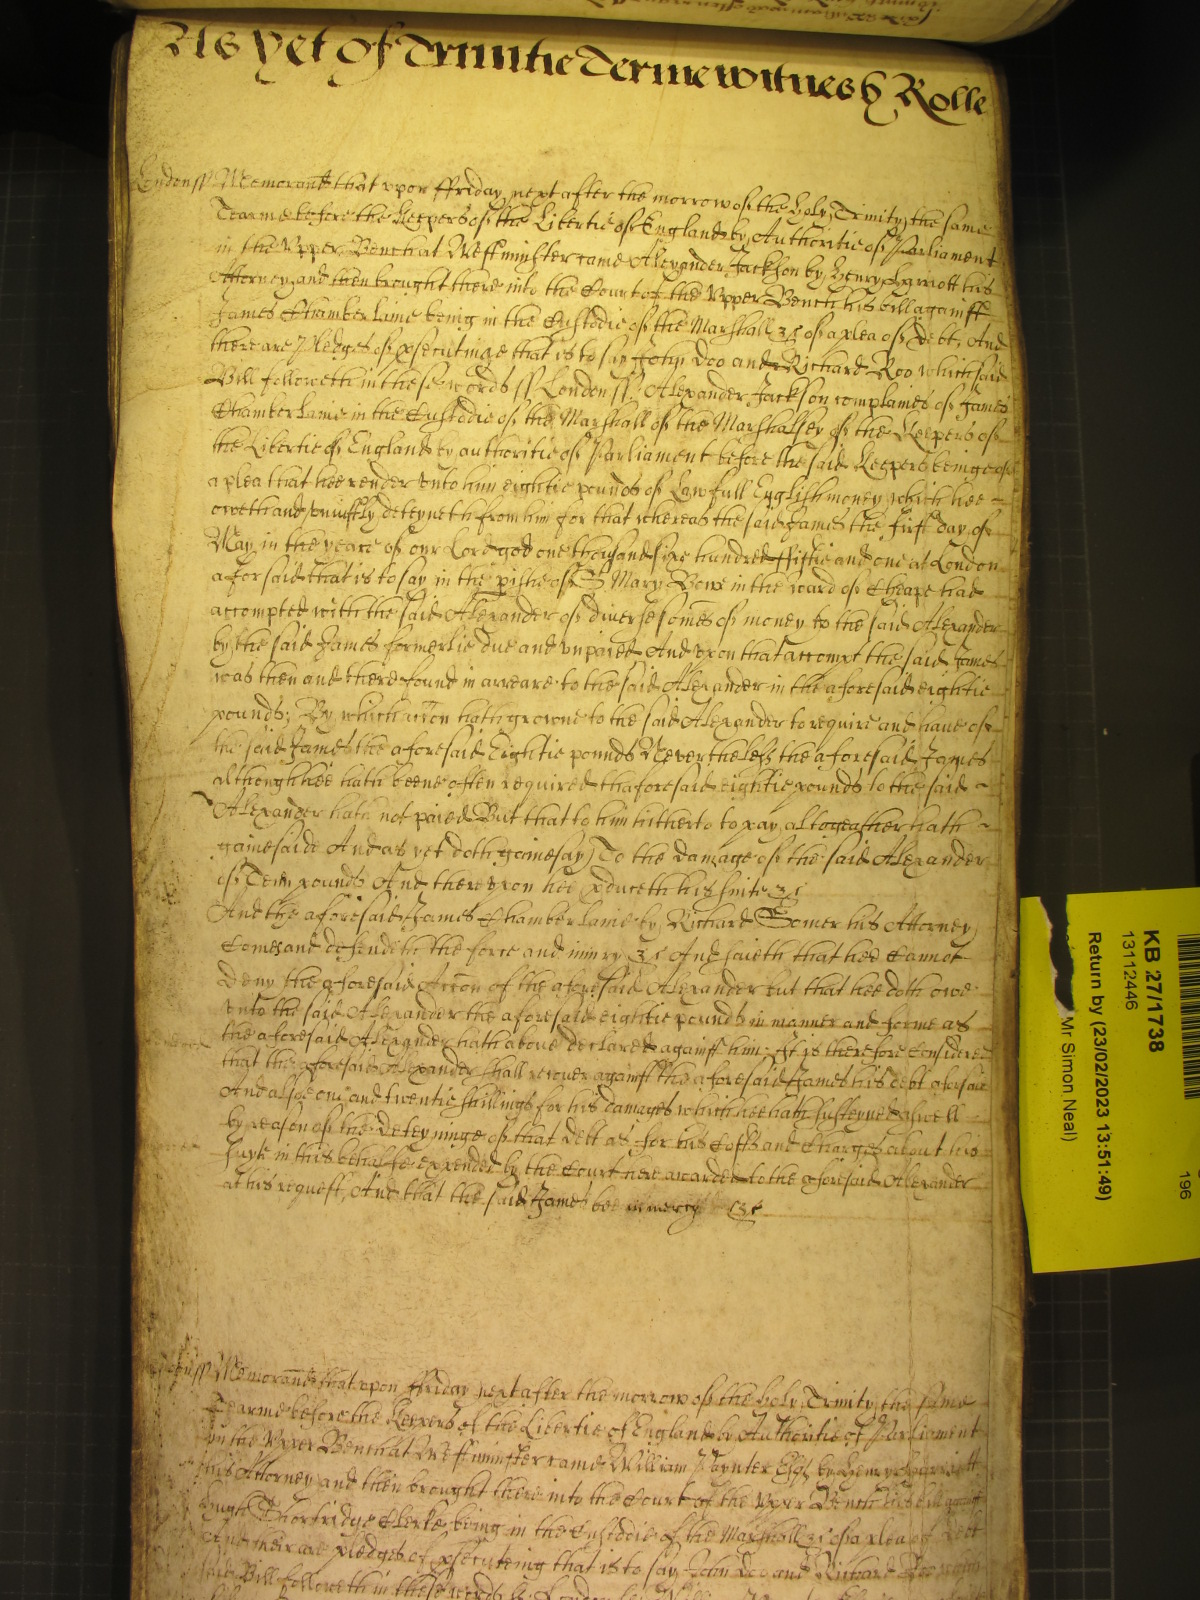 As yet of Trinitie Terme witnes H Rolle
London ss Memorand that vpon ffriday next after the morrow of the holy Trinity the same
Tearme before the Keepers of the Libertie of England by Authoritie of Parliament
in the Vpper Bench at Westminster came Alexander Jackson by Henry Harriott his
Attorney and then brought there into the Court of the Vpper Bench his bill against
James Chamberlaine being in the Custodie of the Marshall &c of a plea of Debt, And
there are Pledges of psecutinge that is to say John Doo and Richard Roo which said
Bill followeth in these words ss London ss Alexander Jackson complaines of James
Chamberlaine in the Custodie of the Marshall of the Marshalsey of the Keepers of
the Libertie of England by authoritie of Parliament before the said Keepers being of
a plea that hee render vnto him eightie pounds of Lawfull English money which hee
oweth and vniustly deteyneth from him for that whereas the said James the first day of
May in the yeare of our Lord god one thousand sixe hundred ffiftie and one at London
aforsaid that is to say in the pishe of St Mary Bowe in the ward of Cheape had
accompted with the said Alexander of diverse somes of money to the said Alexander
by the said James formerlie due and vnpaied And vpon that accompt the said James
was then and there found in arreare to the said Alexander in the aforesaid eightie
pounds; By which accon hath growne to the said Alexander to require and have of
the said James the aforesaid Eightie pounds Neverthelesse the aforesaid James
although hee hath beene often required thaforesaid eightie pounds to the said
Alexander hath not paied But that to him hitherto to pay altogeather hath
gainesaide And as yet doth gainesay To the damage of the said Alexander
of Tenn pounds And therevpon hee pduceth his suite &c
And the aforesaid James Chamberlaine by Richard Somer his Attorney
Comes and defendeth the force and iniury &c And saieth that hee Cannot
Deny the aforesaid Accon of the aforesaid Alexander but that hee doth owe
vnto the said Alexander the aforesaid eightie pounds in manner and forme as
the aforesaid Alexander hath above declared against him: It is therefore Considered
that the aforesaid Alexander shall recover against the aforesaid James his debt aforsaid
And alsoe one and twentie shillings for his damages which hee hath susteyned aswell
by reason of the deteyninge of that debt as for his Costs and Charges about his
suyte in this behalfe expended by the Court here awarded to the aforesaid Alexander
at his request, And that the said James bee in mercy &c
ss Memorand that vpon ffriday next after the morrow of the holy Trinity the same
Tearme before the Keepers of the Libertie of England by Authoritie of Parliament
in the Vpper Bench at Westminster came William Paynter Esq by Henry Harriott
his Attorney and then brought there into the Court of the Vpper Bench his bill against
Hugh Shortridge Clerke being in the Custodie of the Marshall &c of a plea of Debt
And there are pledges of psecuteing that is to say John Doo and Richard Roo which
said Bill followeth in these words ss London
KB 27/1738
13112446
Return by (23/02/2023 13:51:49)
Mr Simon Neal)
196